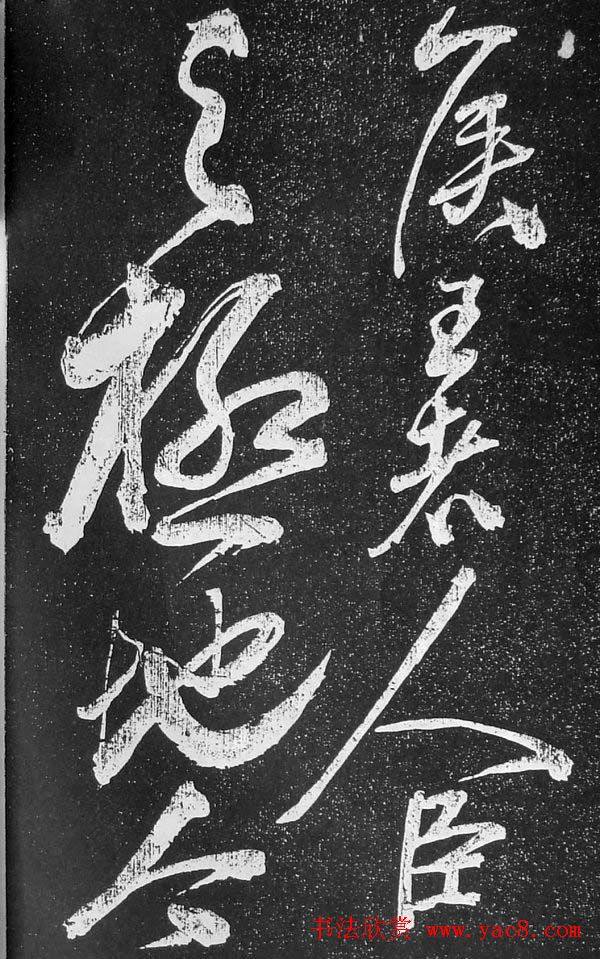 侯王者人臣
之極地今
书法欣赏 www.yac8.com